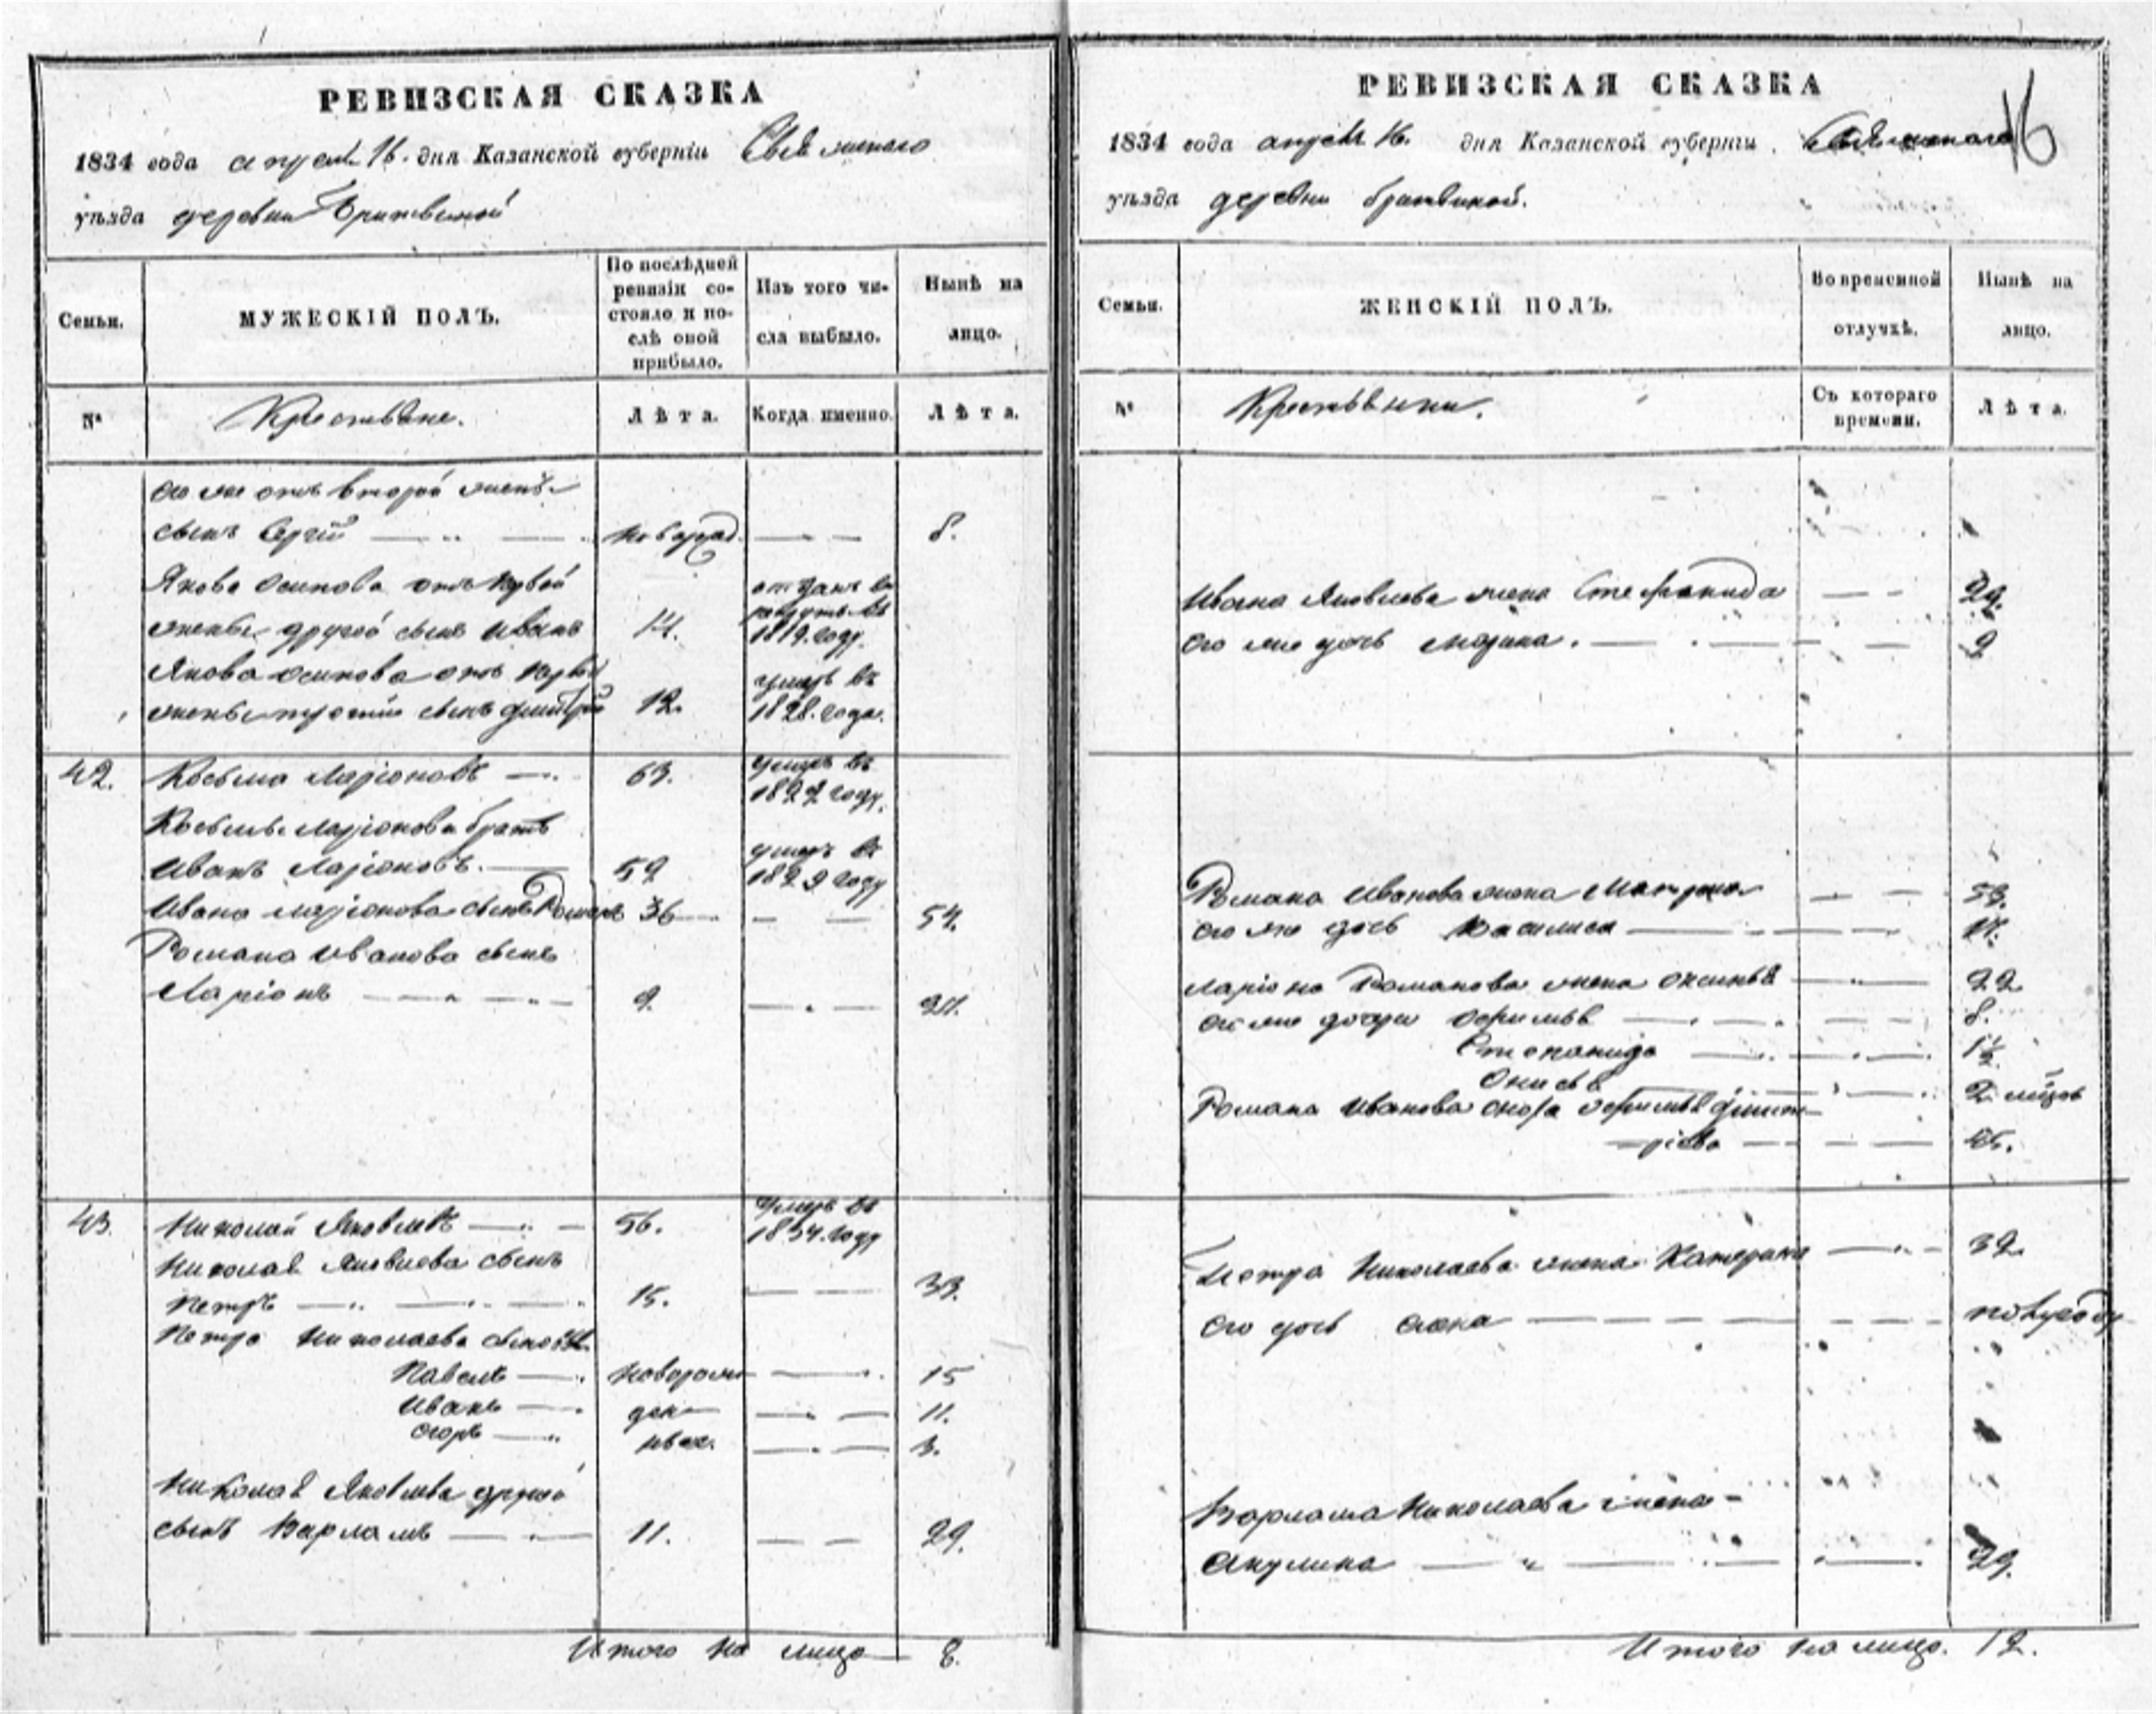 РЕВИЗСКАЯ СКАЗКА
1834 года апреля 16. дня Казанской губерніи Свіяжскаго
уѣзда деревни
Семьи.
МУЖЕСКІЙ ПОЛЪ.
По послѣдней ревизіи состояло и послѣ оной прибыло.
Изъ того числа выбыло.
Нынѣ на лицо.
№
Крестьяне.
Лѣта.
Когда именно.
Лѣта.
его же отъ второй жены
сынъ Сергій новорожд. 8.
Якова Осипова отъ первой отданъ въ
жены другой сынъ Иванъ 14. рекруты въ 1819. году.
Якова Осипова отъ первой умеръ въ
жены третій сынъ Дмитрій 12. 1828. года.
42. Косьма Ларіоновъ 63. умеръ въ
году.
Косьмы Ларіонова братъ
Иванъ Ларіоновъ. 59 умеръ въ
1829 году
Ивана Ларіонова сынъ Романъ 36 54.
Романа Иванова сынъ
Ларіонъ 9. 27.
43. Николай Яковлевъ 56. умеръ въ
1834. году
Николая Яковлева сынъ
Петръ 15. 33.
Петра Николаева сыновья
Павелъ новорож 15
Иванъ ден 11.
Егоръ ные. 3.
Николая Яковлева другой
сынъ Варламъ 11. 29.
Итого на лицо 8.
РЕВИЗСКАЯ СКАЗКА
16
1834 года апреля 16. дня Казанской губерніи Свіяжскаго
уѣзда деревни
Семьи.
ЖЕНСКІЙ ПОЛЪ.
Во временной отлучкѣ.
Нынѣ на лицо.
№
Крестьянки.
Съ котораго времени.
Лѣта.
Ивана Яковлева жена Стефанида 29.
его же дочь Марина. 9
Романа Иванова жена Матрена 53.
его же дочь Василиса 17.
Ларіона Романова жена Оксинья 29
его же дочери Офимья 8.
Степанида 1½
Онисья 2 мѣсяц
Романа Иванова сноха Офимья Дмит-
ріева 45.
Петра Николаева жена Катерина 32.
его дочь Олена полугоду
Варлама Николаева жена
Акулина 29.
Итого на лицо. 12.